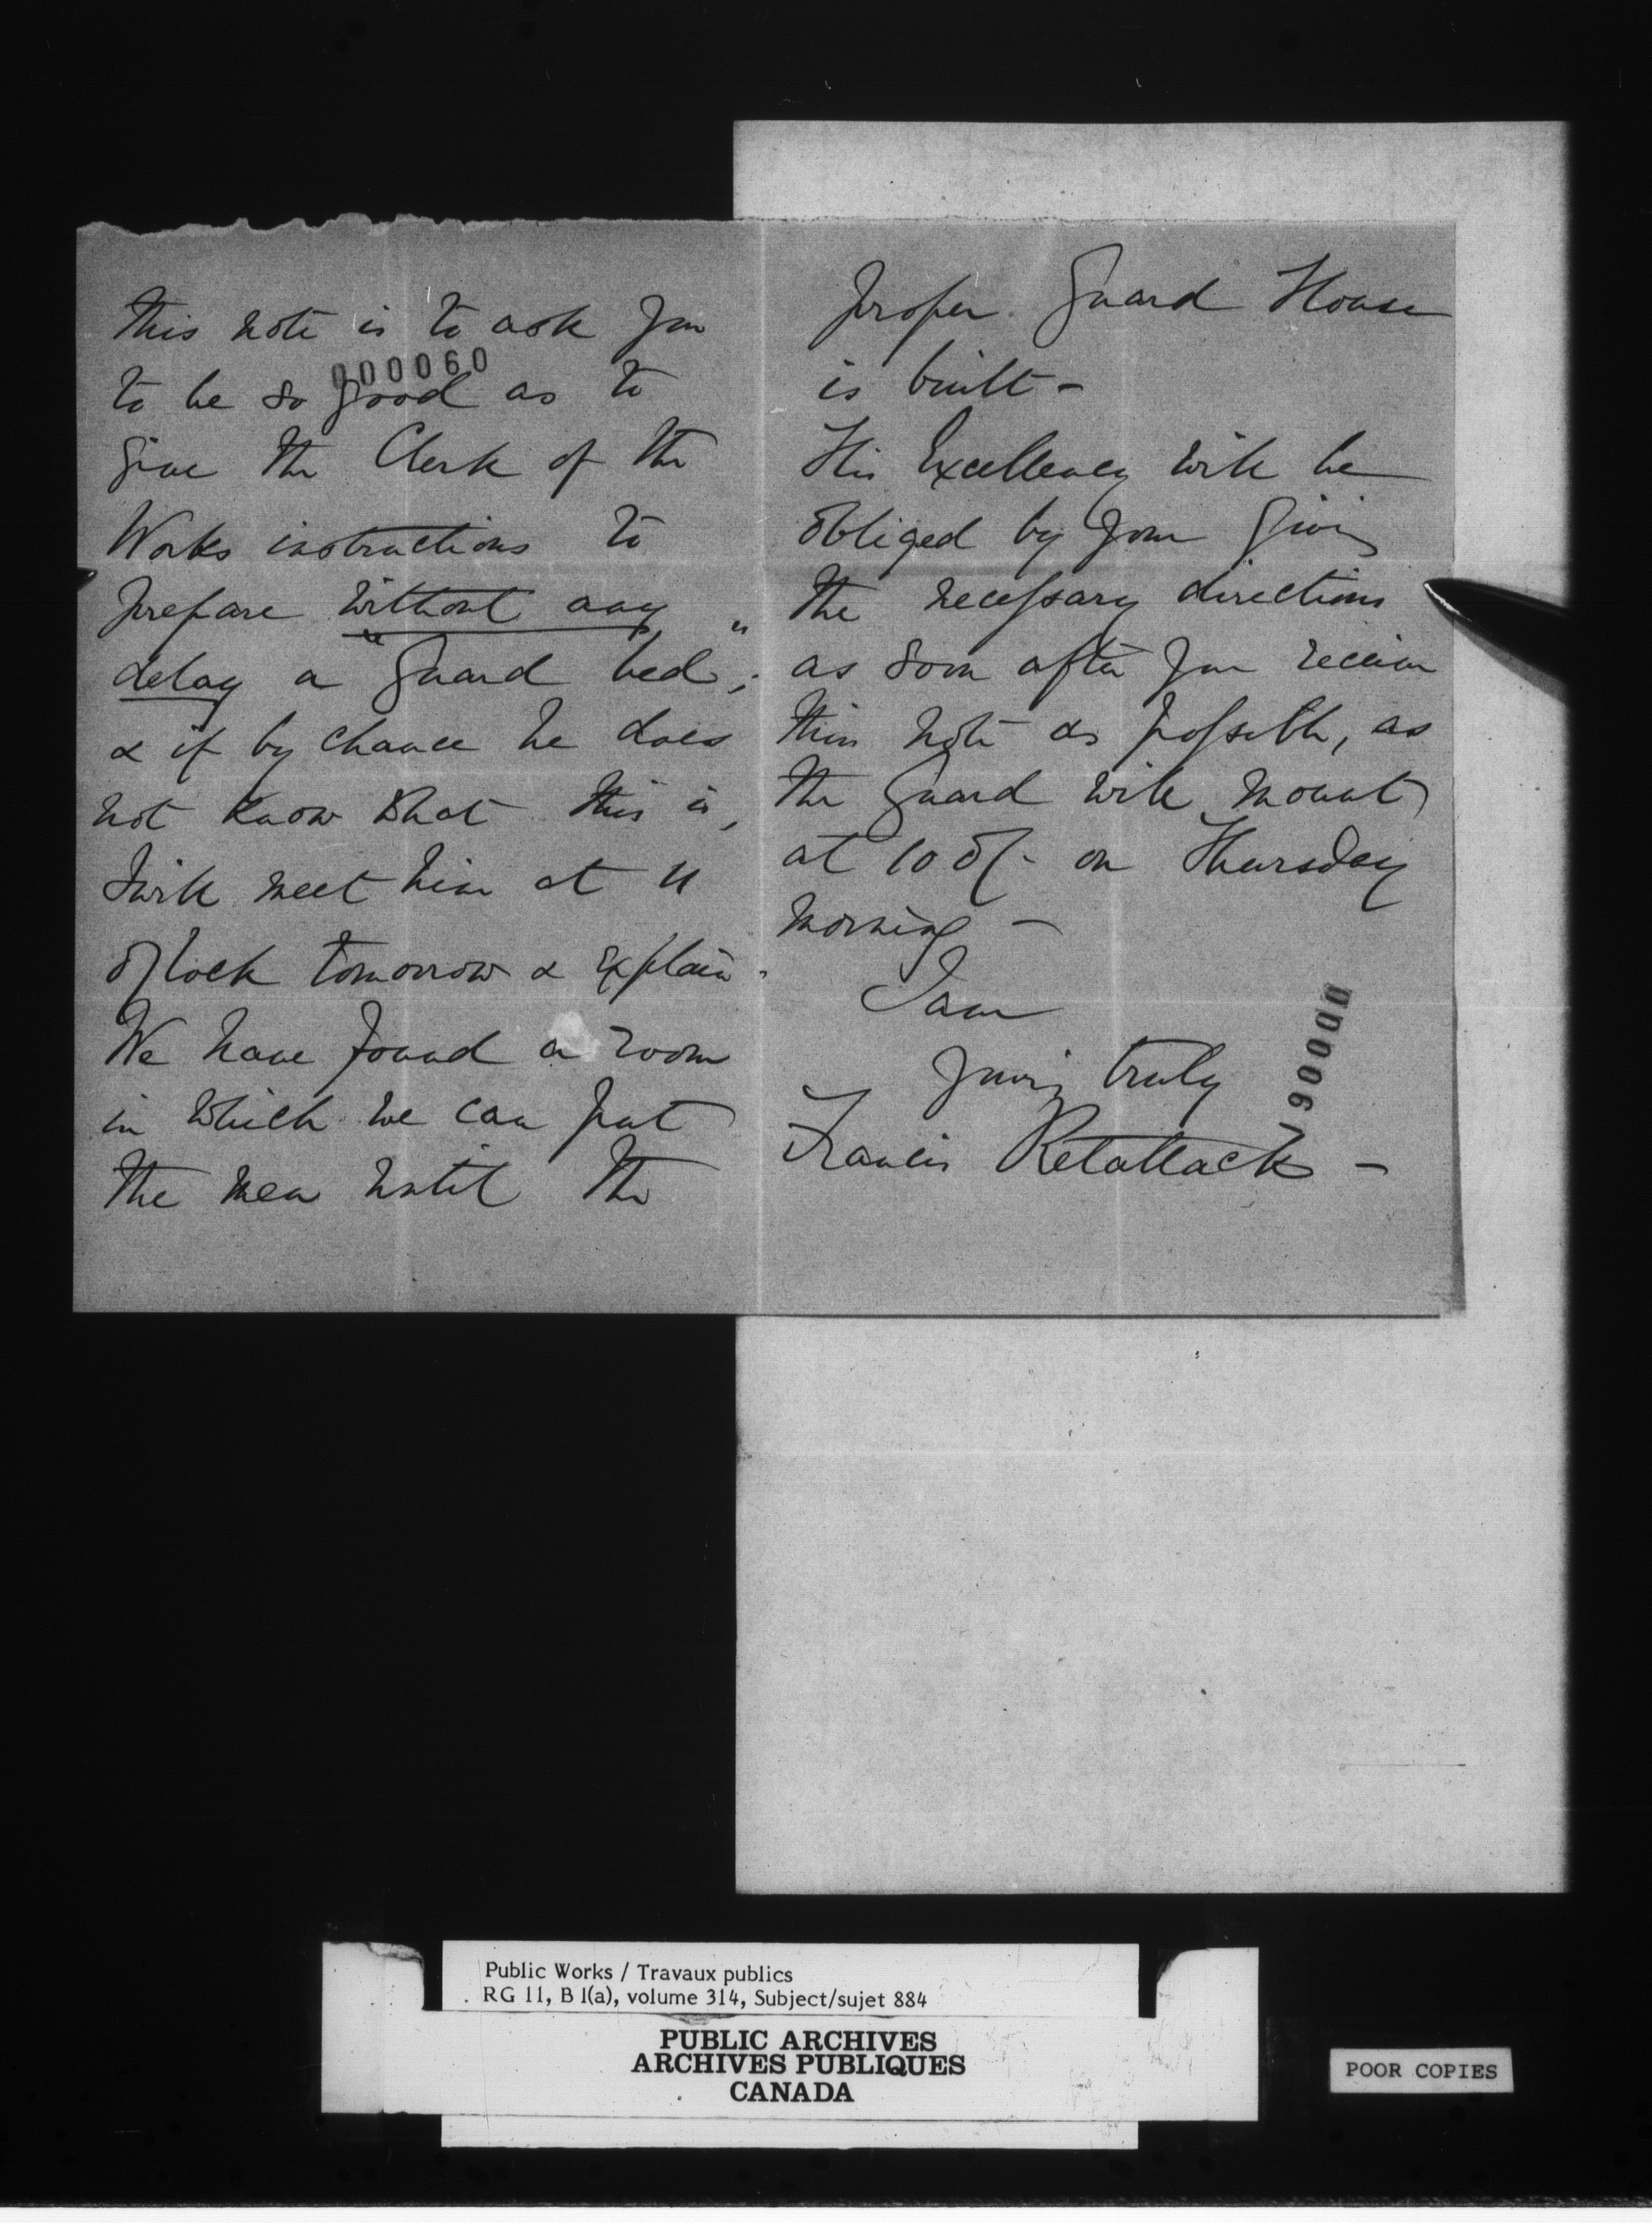 this note is to ask you
000060
to be so good as to
give the Clerk of the
Works instructions to
prepare without any
delay a "Guard bed";
& if by chance he does
not know what this is,
I will meet him at 11
o'clock tomorrow & explain.
We have found a room
in which we can put
the men until the
proper Guard House
is built -
His Excellency will be
obliged by your giving
the necessary directions
as soon after you receive
this note as possible, as
the Guard will mount
at 10 o/- on Thursday
morning -
I am
Yours truly
Francis Retallack -
000061
Public Works / Travaux publics
RG 11, B 1(a), volume 314, Subject/sujet 884
PUBLIC ARCHIVES
ARCHIVES PUBLIQUES
CANADA
POOR COPIES